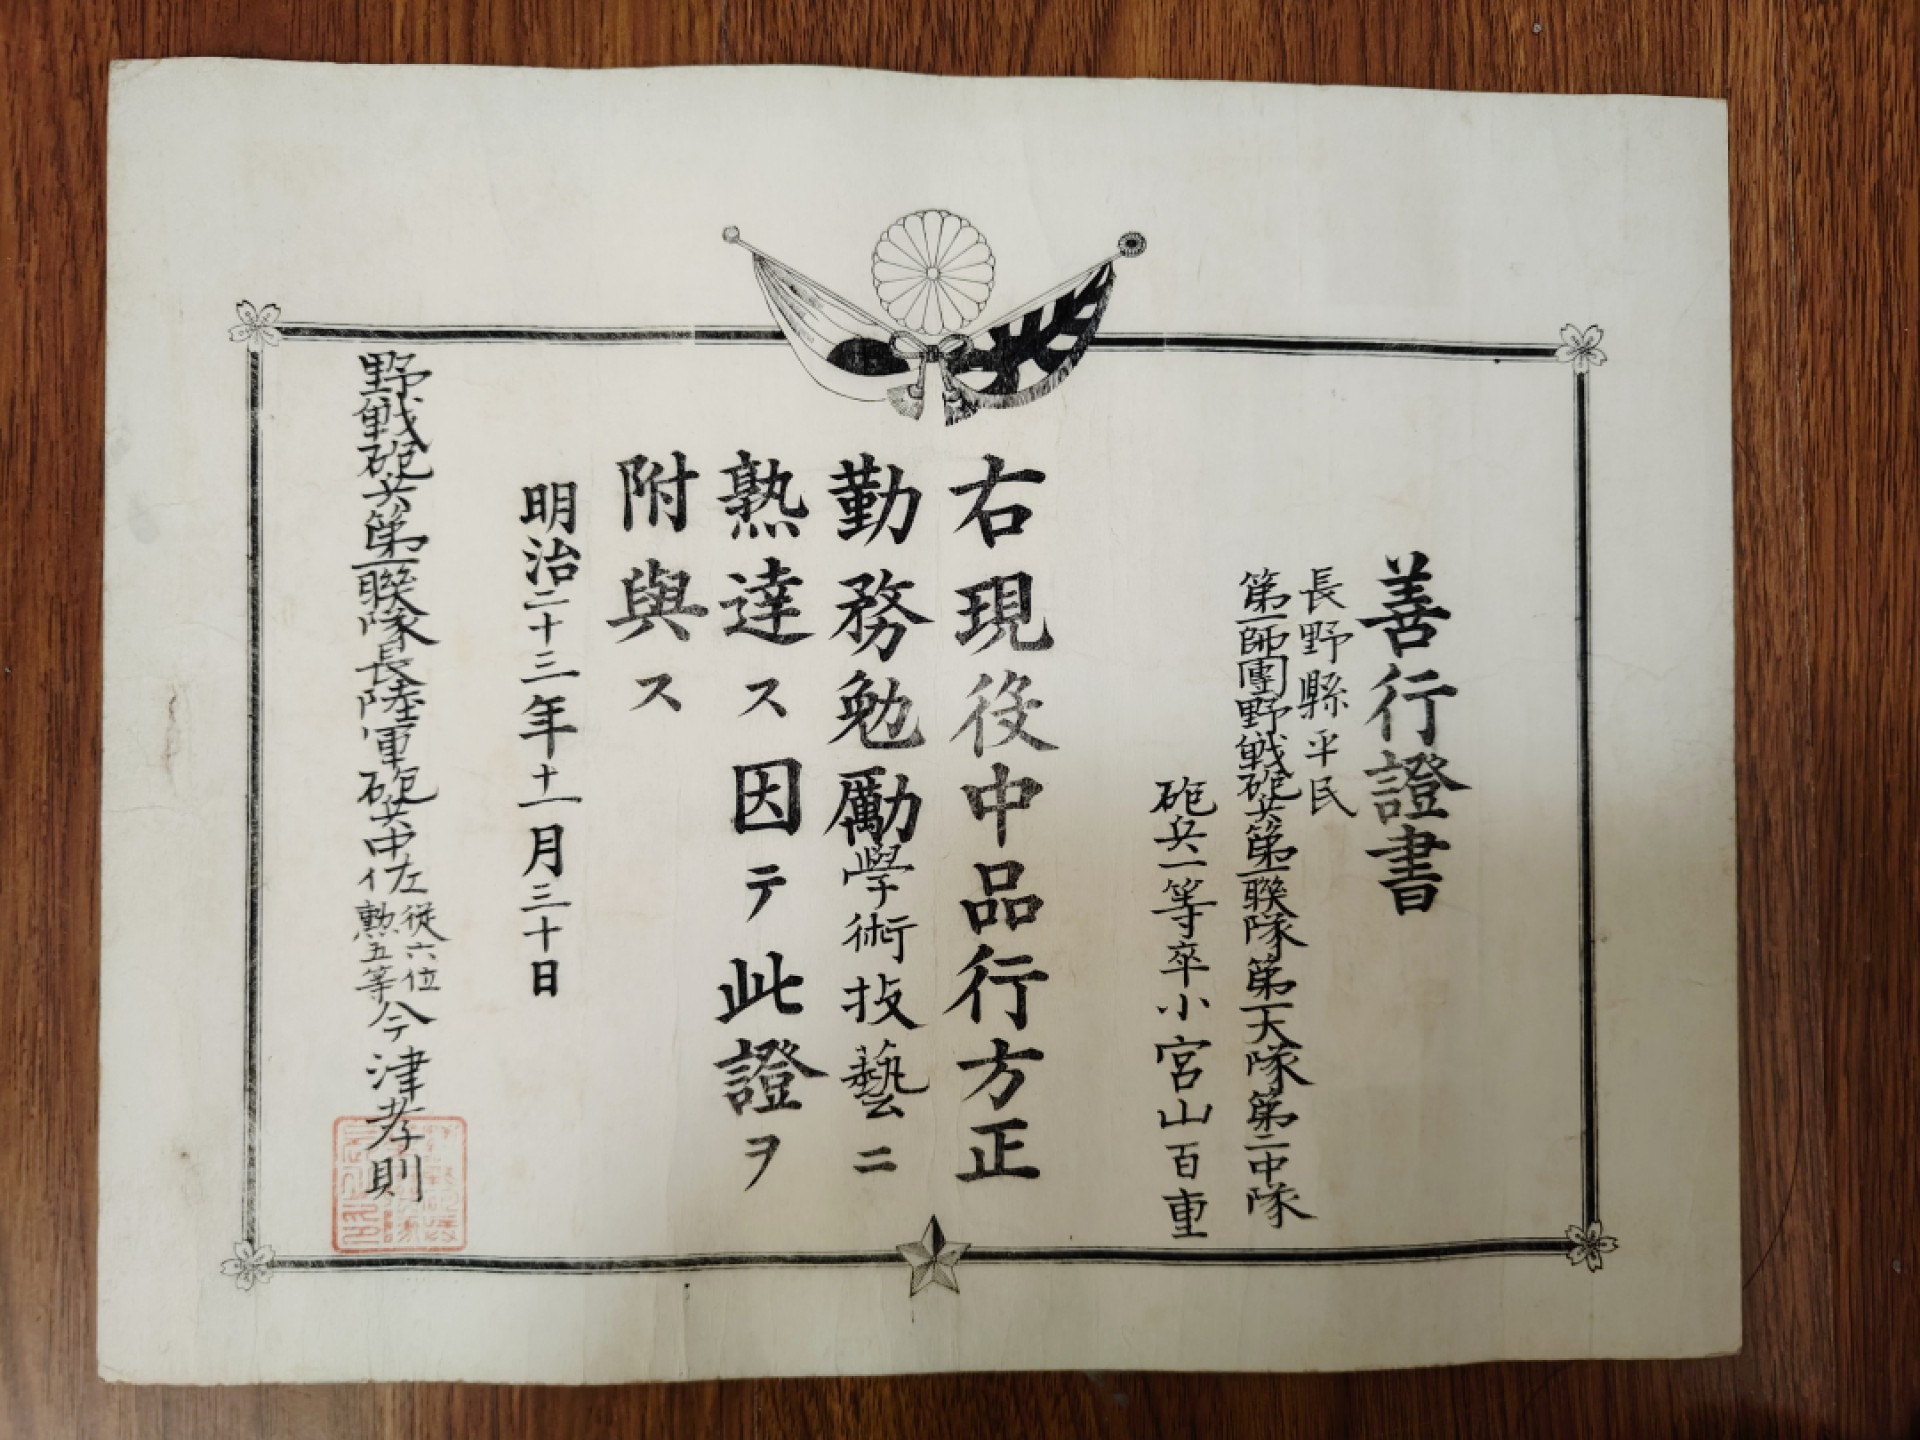 善行證書
長野縣平民
第一師團野戰砲兵第一聯隊第一大隊第二中隊
砲兵一等卒小宮山百重
右現役中品行方正
勤務勉勵學術技藝ニ
熟達ス因テ此證ヲ
附與ス
明治二十三年十一月三十日
野戰砲兵第一聯隊長陸軍砲兵中佐從六位勲五等今津孝則